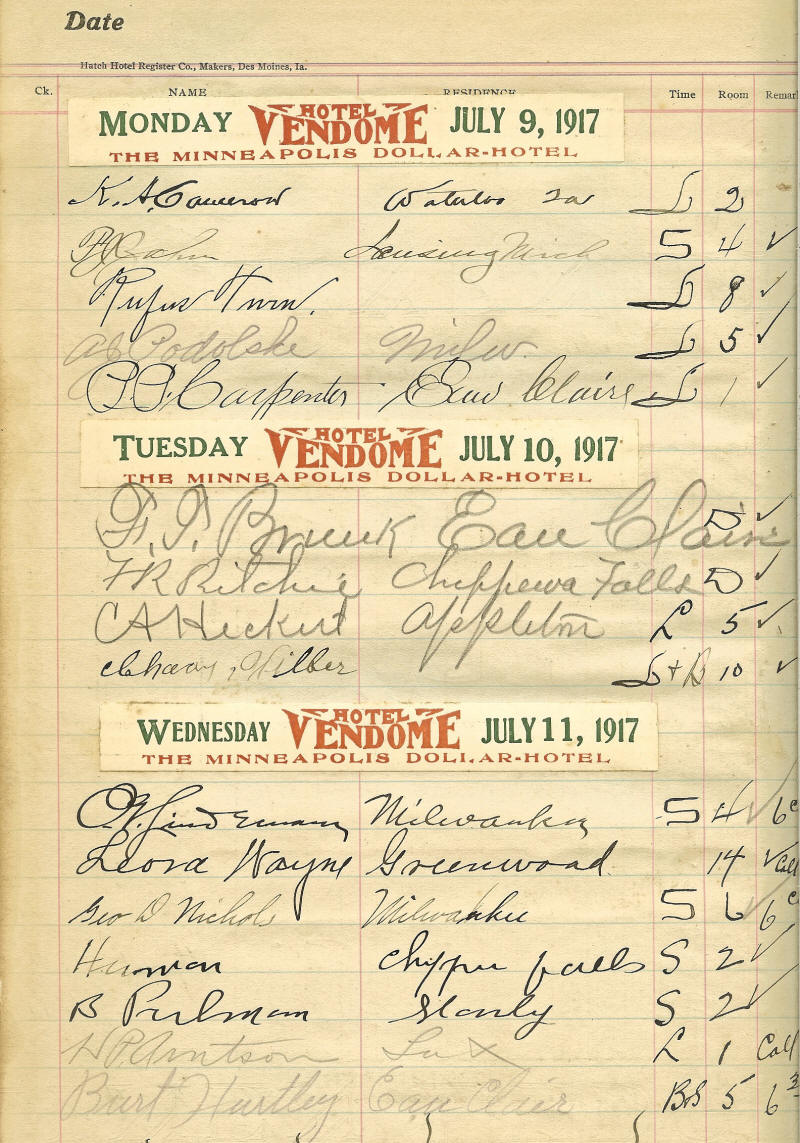 Date
Hatch Hotel Register Co., Makers, Des Moines, Ia.
Ck. NAME RESIDENCE Time Room Remar
MONDAY HOTEL VENDOME JULY 9, 1917
THE MINNEAPOLIS DOLLAR-HOTEL
K. A. Cameron Waterloo Ia L 2
Cahn Lansing Mich S 4 ✓
Rufus L 8 ✓
Podolske Milw. L 5 ✓
Carpenter Eau Claire L 1 ✓
TUESDAY HOTEL VENDOME JULY 10, 1917
THE MINNEAPOLIS DOLLAR-HOTEL
F. T. Brunk Eau Claire D ✓
F R Ritchie Chippewa Falls D ✓
C A Heckert Appleton L 5 ✓
Wilber L + B 10 ✓
WEDNESDAY HOTEL VENDOME JULY 11, 1917
THE MINNEAPOLIS DOLLAR-HOTEL
Lindemann Milwaukee S 4 ✓ 6
Leora Wayne Greenwood 14 ✓ Call
Geo D Nichols Milwaukee S 6 ✓ 6
Herman falls S 2 ✓
B Perlman Stanly S 2 ✓
La X L 1 Call
Burt Hartley Eau Clair 5 6